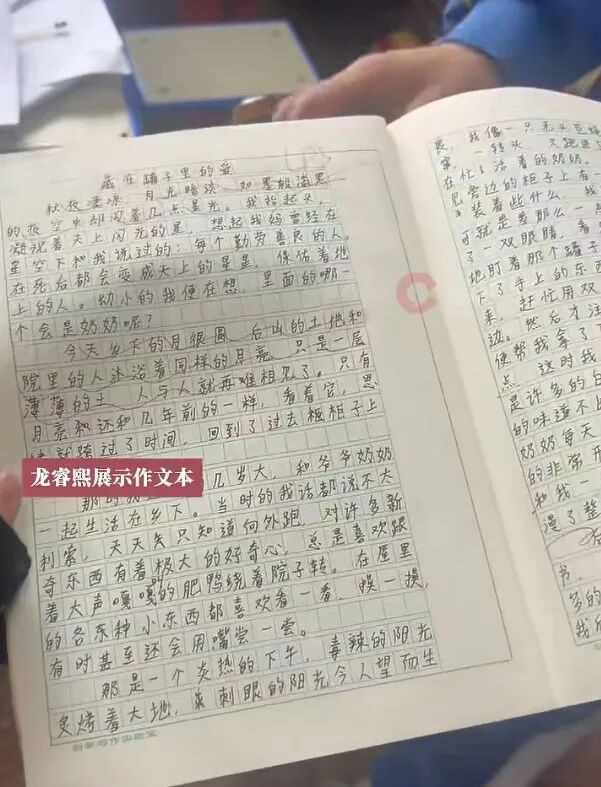 藏在罐子里的爱
秋夜凄凉，月光暗淡，如墨般漆黑
的夜空中却闪着几点星光。我抬起头，
凝视着天上闪光的星，想起我妈曾经在
星空下和我说过的：每个勤劳善良的人
在死后都会变成天上的星星，保佑着地
上的人。幼小的我便在想，里面的哪一
个会是奶奶呢？
今天乡下的月很圆，后山的土地和
院里的人沐浴着同样的月亮，只是一层
薄薄的土，人与人就再难相见了。只有
月亮和还和几年前的一样，看着它，思
绪就跨过了时间，回到了过去柜子上
龙睿熙展示作文本
那时我 几岁大，和爷爷奶奶
一起生活在乡下。当时的我话都说不大
利索，天天矢只知道向外跑，对许多新
奇东西有着极大的好奇心，总是喜欢跟
着大声嘎嘎的肥鸭绕着院子转。在屋里
的各东种小东西都喜欢看一看，摸一摸，
有时甚至还会用嘴尝一尝。
那是一个炎热的下午，毒辣的阳光
炙烤着大地，刺眼的阳光令人望而生
畏，我像一只无头苍蝇
一转头，又跑进
在忙活着的奶奶。
旁边的柜子上有一
装着些什么，我
可就是差那么一点
了一双眼睛，看
地盯着那个罐子
下了手上的东西
来，赶忙用双
边。然后才注
便帮我拿了下
点，这时我
是许多的白
的味道不比
奶奶每天
的非常开
和我一
漫了整
书，
多的
我